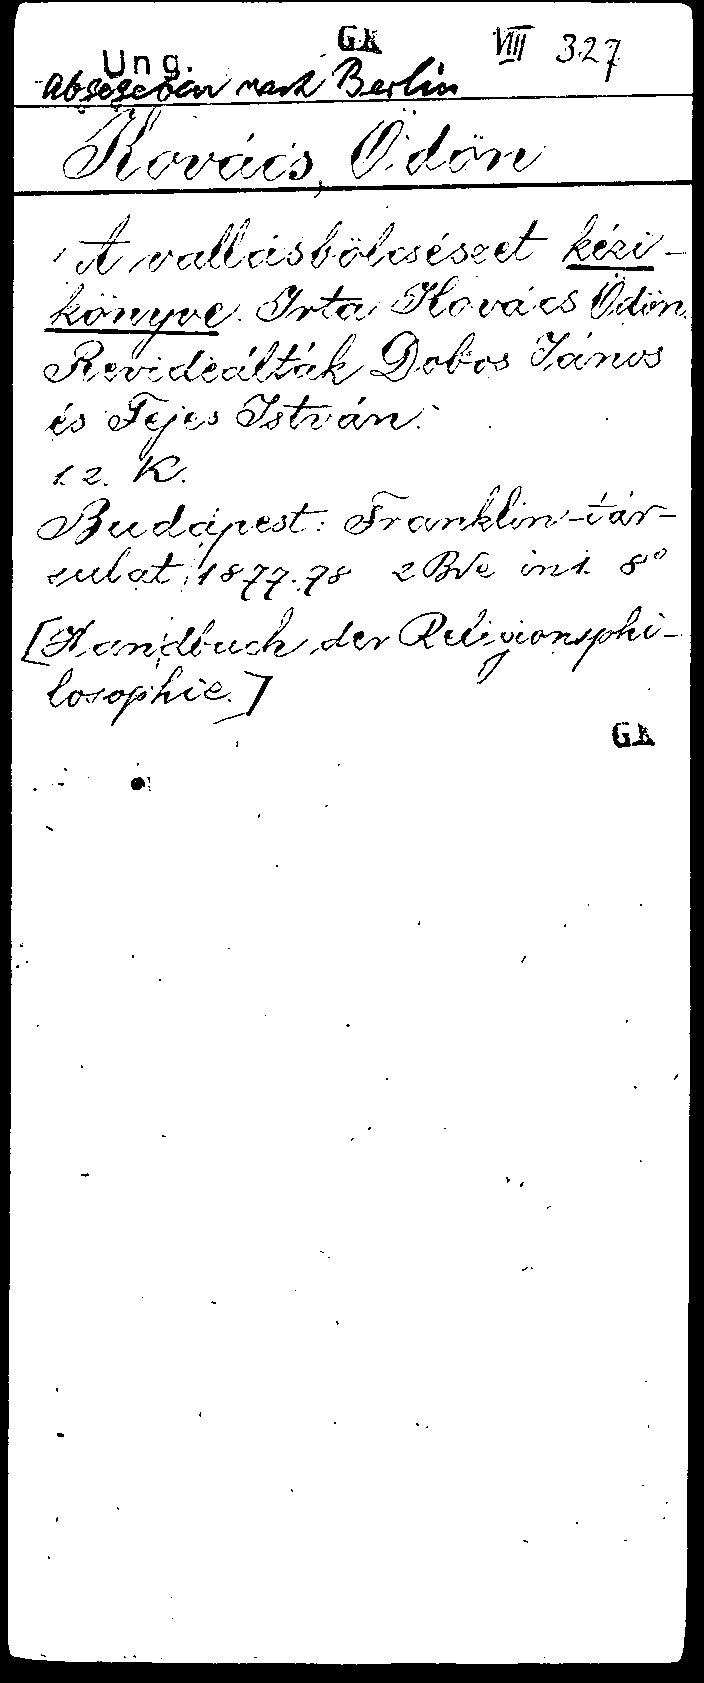 G.K VIII 327
Ung.
abgegeben nach Berlin
Kovács, Ödön
A vallásbölcsészet kézi-
könyve. Irta Kovács Ödön.
Revideálták Dobos János
és Fejes István.
1. 2. K.
Budapest: Franklin-tár-
sulat 1877. 78 2 Bde in 1. 8°
[Handbuch der Religionsphi-
losophie.]
G.K